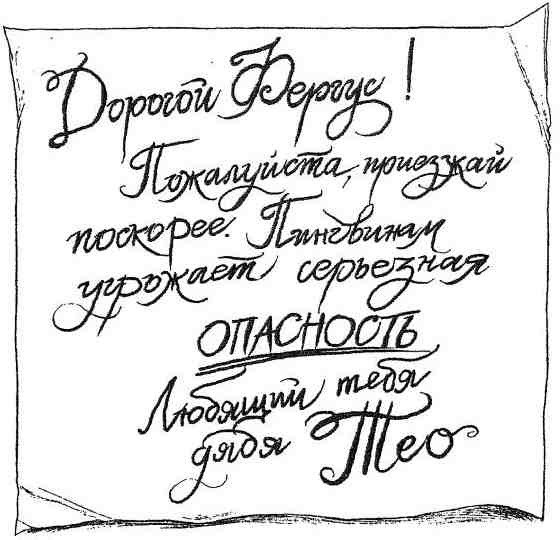 Дорогой Фергус!
Пожалуйста, приезжай
поскорее. Пингвинам
угрожает серьезная
ОПАСНОСТЬ
Любящий тебя
дядя Тео